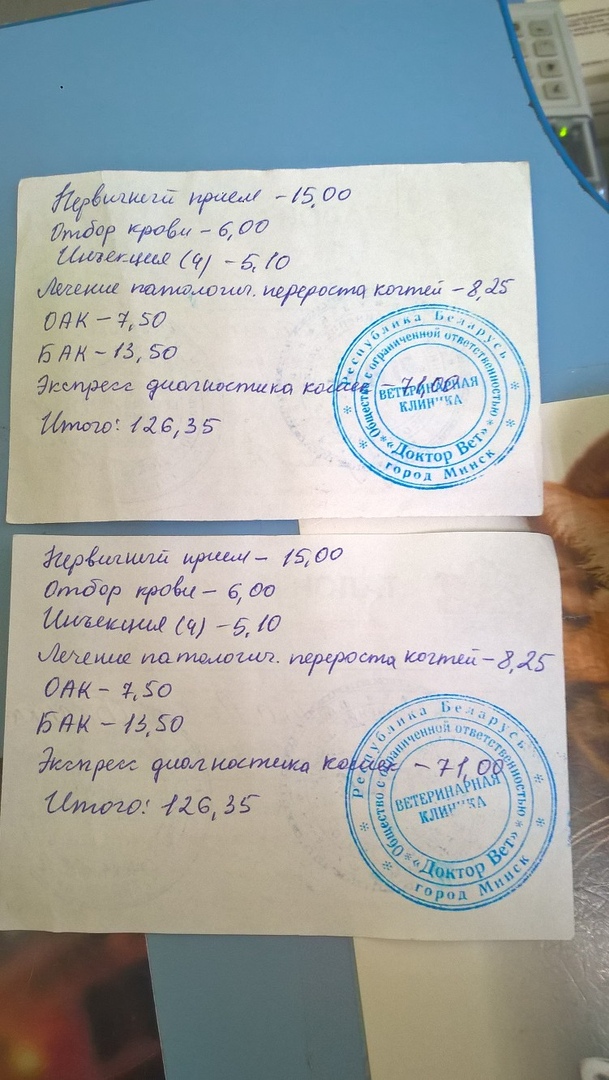 Первичный прием – 15,00
Отбор крови – 6,00
Инъекция (4) – 5,10
Лечение патологич. перероста когтей – 8,25
ОАК – 7,50
БАК – 13,50
Экспресс диагностика кошек – 71,00
Итого: 126,35
Республика Беларусь
Общество с ограниченной ответственностью
ВЕТЕРИНАРНАЯ
КЛИНИКА
«Доктор Вет»
город Минск
Первичный прием – 15,00
Отбор крови – 6,00
Инъекция (4) – 5,10
Лечение патологич. перероста когтей – 8,25
ОАК – 7,50
БАК – 13,50
Экспресс диагностика кошек – 71,00
Итого: 126,35
Республика Беларусь
Общество с ограниченной ответственностью
ВЕТЕРИНАРНАЯ
КЛИНИКА
«Доктор Вет»
город Минск